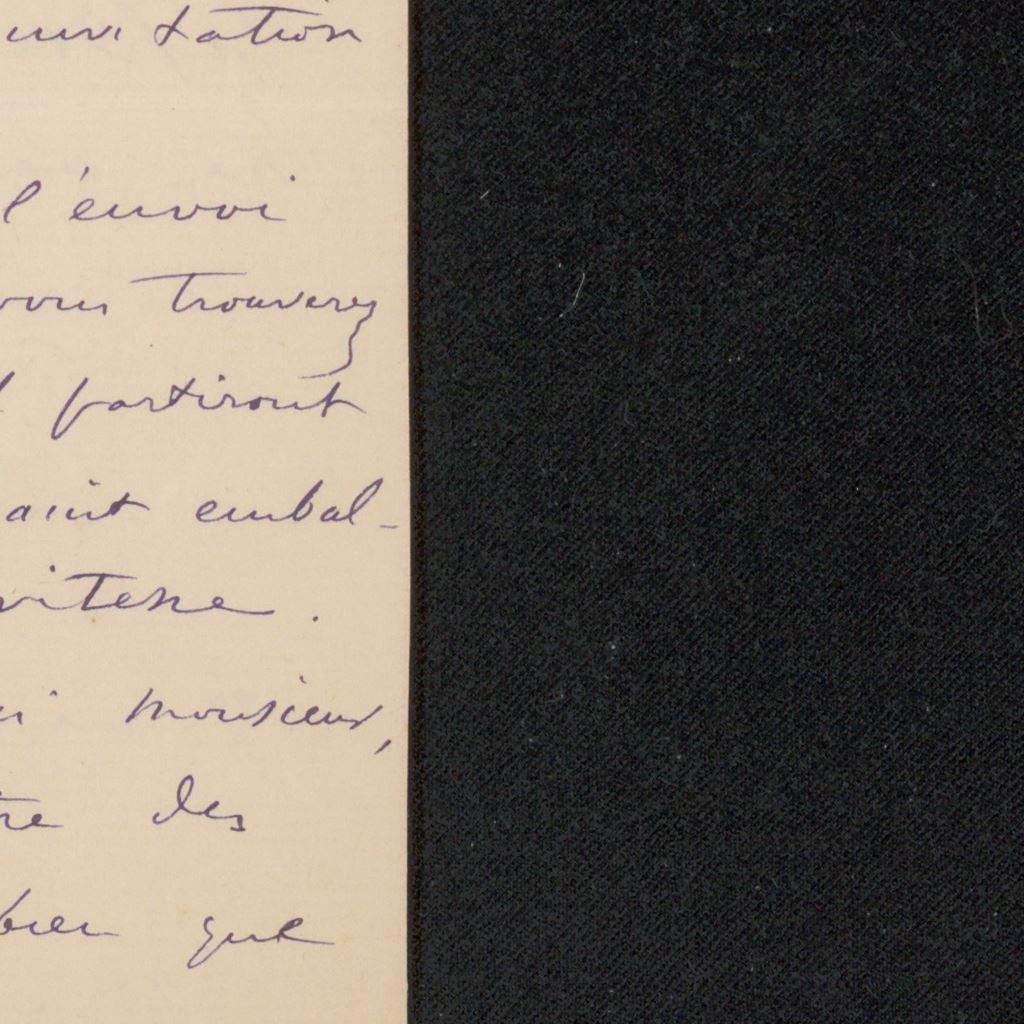 invitation
l'envoi
vous trouverez
partiront
embal-
vitesse.
monsieur,
des
bien que